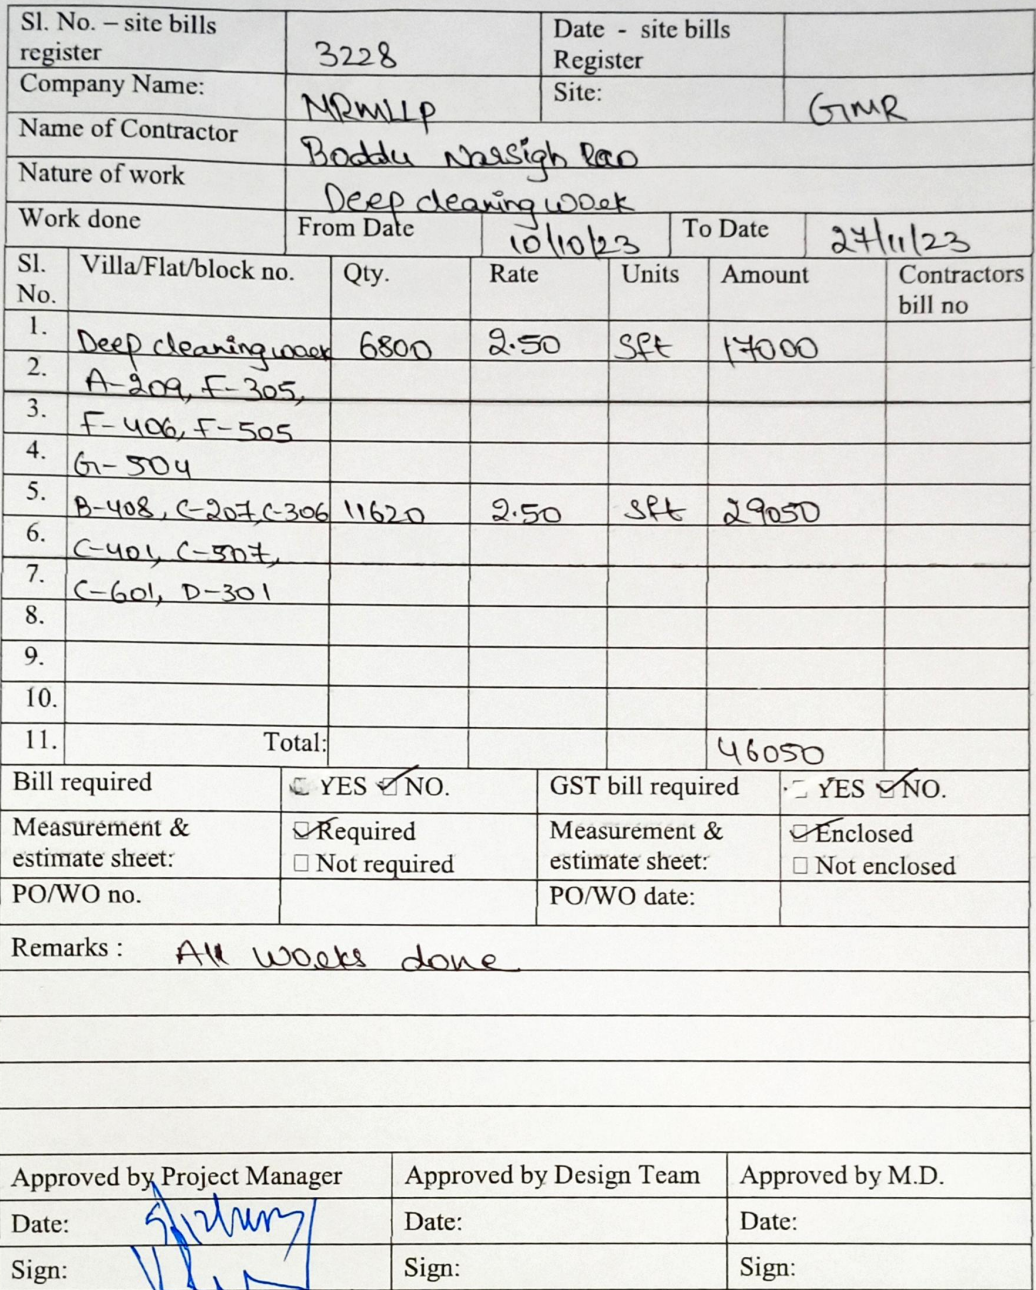 Sl. No. – site bills register 3228 Date - site bills Register
Company Name: NRMLLP Site: GMR
Name of Contractor Boddu Narsigh Rao
Nature of work Deep cleaning work
Work done From Date 10/10/23 To Date 27/11/23
Sl. No. Villa/Flat/block no. Qty. Rate Units Amount Contractors bill no
1. Deep cleaning work 6800 2.50 Sft 17000
2. A-209, F-305,
3. F-406, F-505
4. G-504
5. B-408, C-207, C-306 11620 2.50 Sft 29050
6. C-401, C-507,
7. C-601, D-301
8.
9.
10.
11. Total: 46050
Bill required YES NO. GST bill required YES NO.
Measurement & estimate sheet: Required Measurement & estimate sheet: Enclosed
Not required Not enclosed
PO/WO no. PO/WO date:
Remarks : All works done
Approved by Project Manager Approved by Design Team Approved by M.D.
Date: Date: Date:
Sign: Sign: Sign: